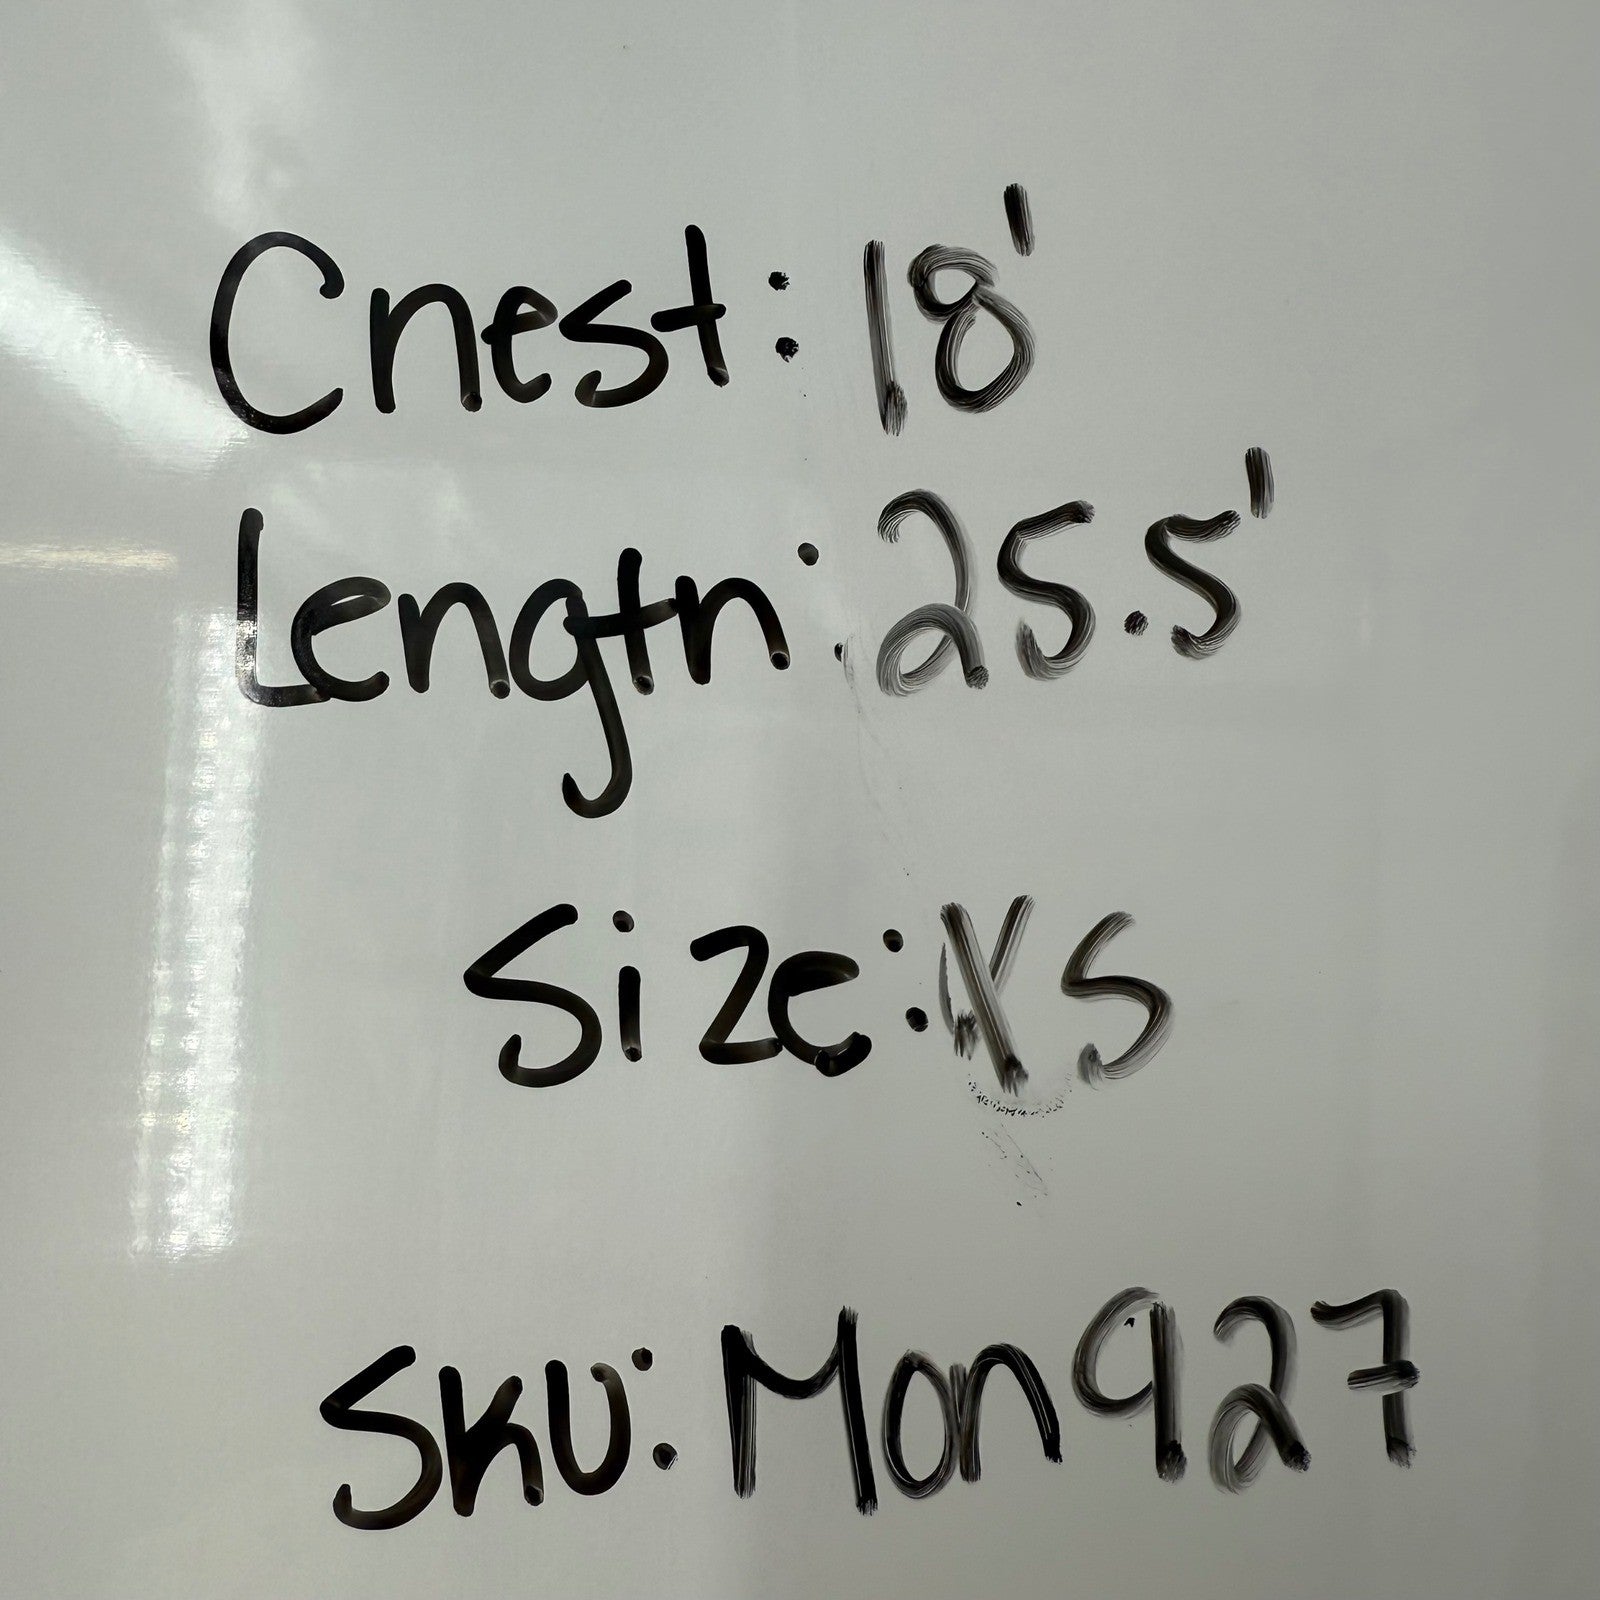 Chest: 18'
Length: 25.5'
Size: XS
SKU: Mon927